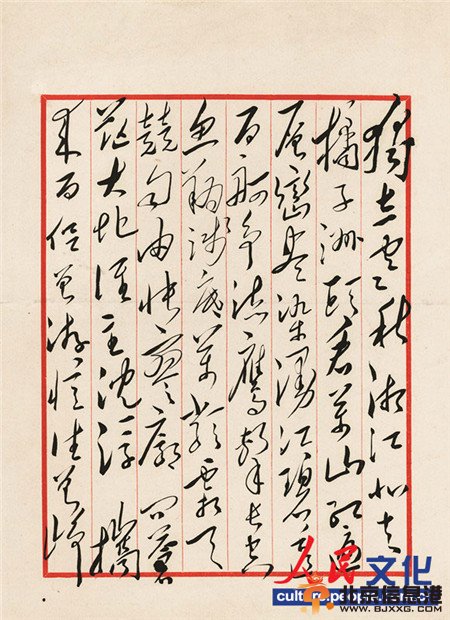 獨立寒秋湘江北去
橘子洲頭看萬山紅遍
層巒盡染漫江碧透
百舸爭流鷹擊長空
魚翔淺底萬類霜天
競自由悵寥廓 問蒼
茫大地誰主沈浮 攜
來百侶曾游憶往昔崢
人民文化
culture.people.com.cn
北京信息港
WWW.BJXXG.COM